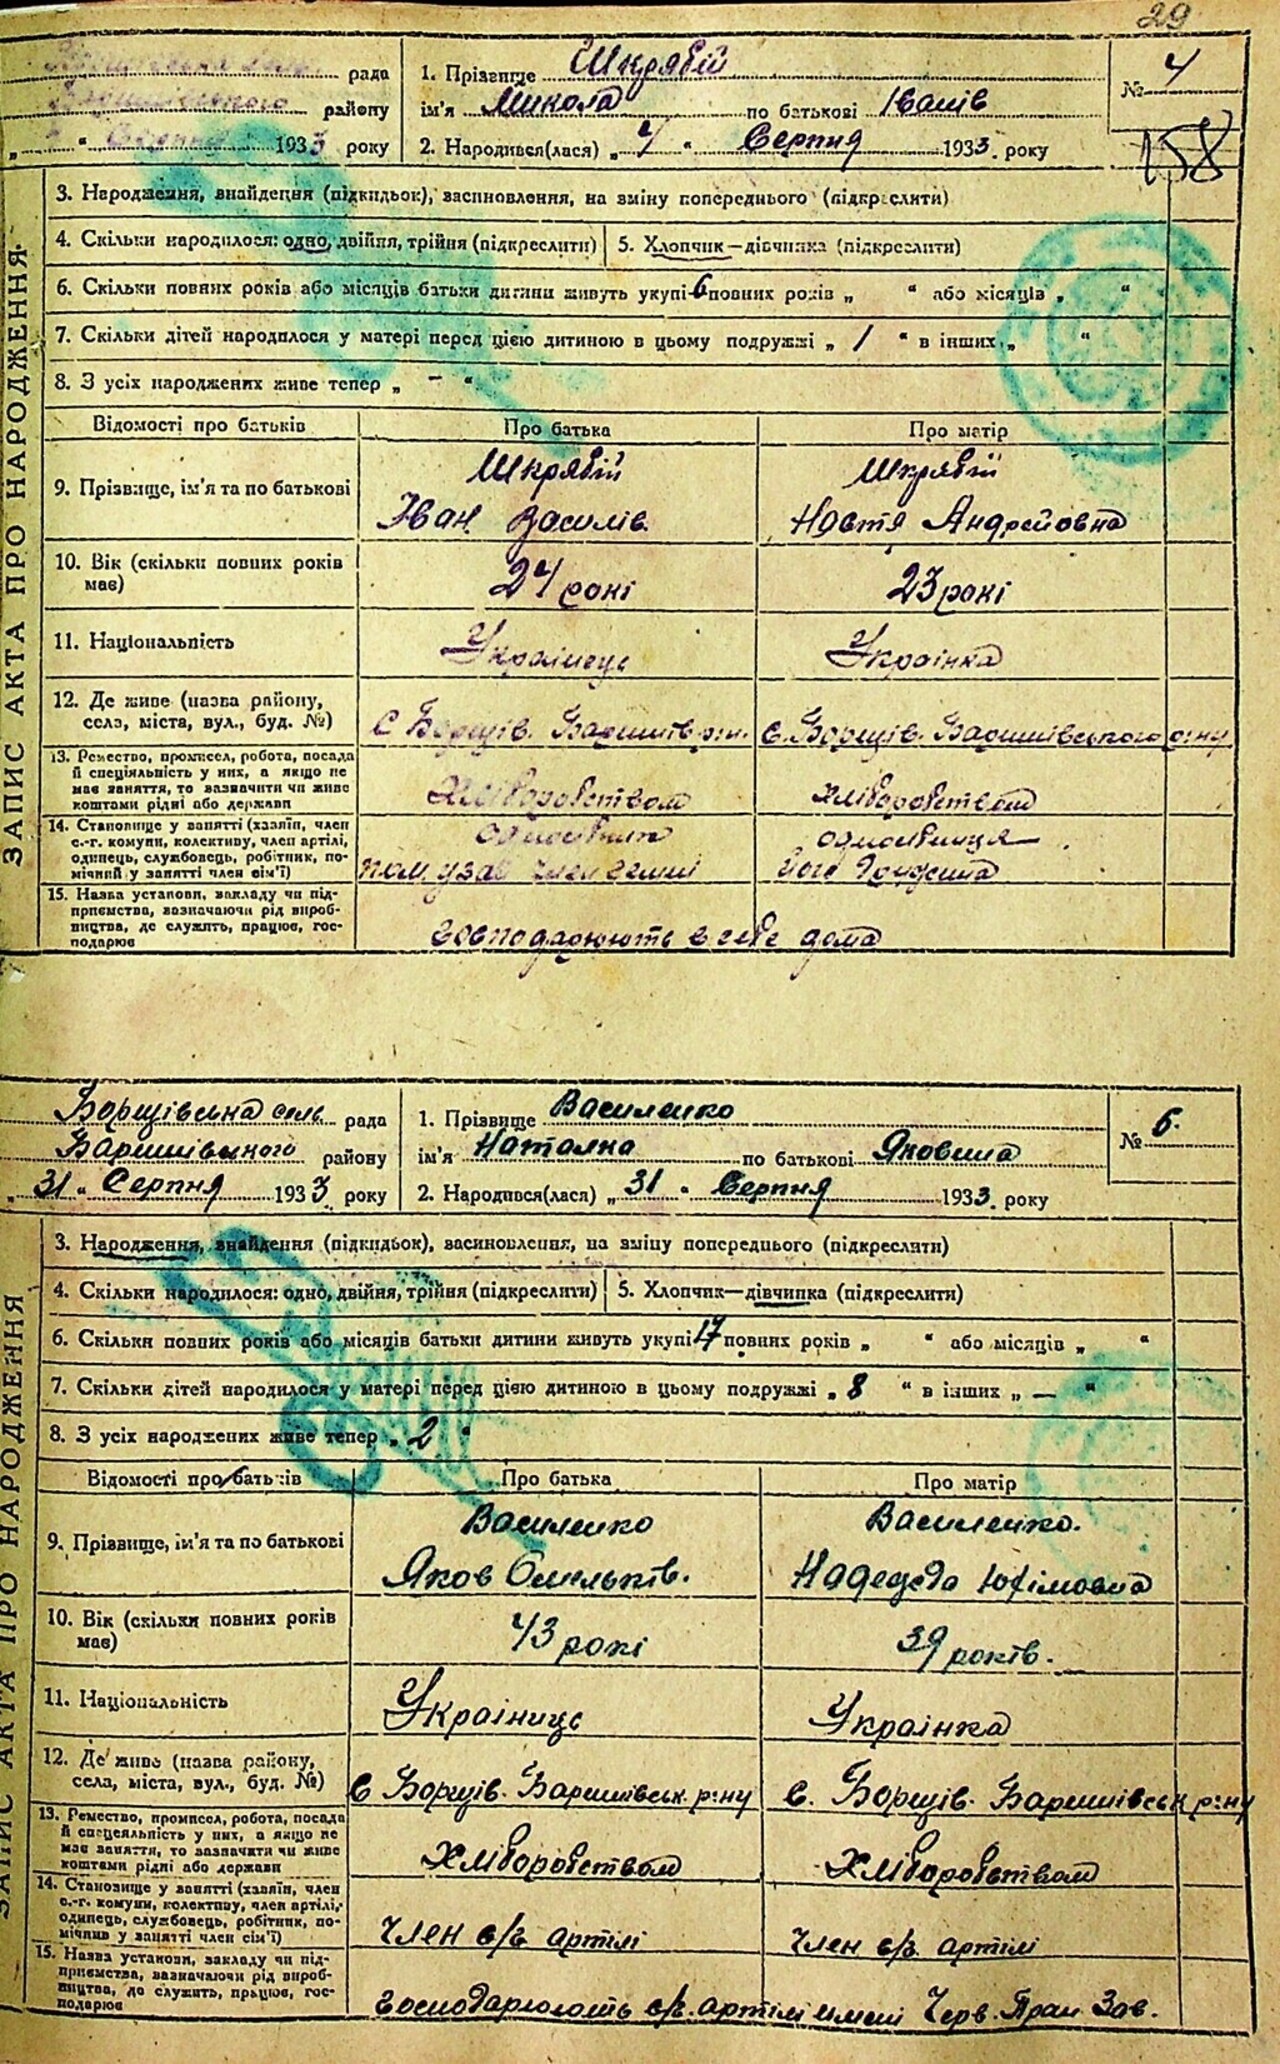 29
рада
району
Серпня 1933 року
1. Прізвище Шкрябій
ім'я Микола по батькові Іванів
2. Народився(лася) „ 4 “ Серпня 1933. року
№ 4
158
ЗАПИС АКТА ПРО НАРОДЖЕННЯ
3. Народження, знайдення (підкидьок), засиновлення, на зміну попереднього (підкреслити)
4. Скільки народилося: одно, двійня, трійня (підкреслити) 5. Хлопчик—дівчинка (підкреслити)
6. Скільки повних років або місяців батьки дитини живуть укупі 6 повних років „ “ або місяців „ “
7. Скільки дітей народилося у матері перед цією дитиною в цьому подружжі „ 1 “ в інших „ “
8. З усіх народжених живе тепер „ - “
Відомості про батьків Про батька Про матір
9. Прізвище, ім'я та по батькові
Шкрябій Шкрябій
Іван Василів. Настя Андрейовна
10. Вік (скільки повних років має)
24 рокі 23 рокі
11. Національність Українець Українка
12. Де живе (назва району,
села, міста, вул., буд. №)
С Борщів. Баришів р-н. с. Борщів. Баришівського р-ну
13. Ремество, промисел, робота, посада
й спеціяльність у них, а якщо не
має заняття, то зазначити чи живе
коштами рідні або держави
Хліборобством Хліборобством
14. Становище у занятті (хазяїн, член
с.-г. комуни, колективу, член артілі,
одинець, службовець, робітник, по-
мічний у занятті член сім'ї)
одноосібник одноосібниця
15. Назва установи, закладу чи під-
приємства, зазначаючи рід вироб-
ництва, де служить, працює, гос-
подарює
господарюють в себе дома
Борщівська сель. рада
Баришівського району
„ 31 “ Серпня 1933. року
1. Прізвище Василенко
ім'я Наталка по батькові Яковина
2. Народився(лася) „ 31 “ Серпня 1933. року
№ 6.
ЗАПИС АКТА ПРО НАРОДЖЕННЯ
3. Народження, знайдення (підкидьок), засиновлення, на зміну попереднього (підкреслити)
4. Скільки народилося: одно, двійня, трійня (підкреслити) 5. Хлопчик—дівчинка (підкреслити)
6. Скільки повних років або місяців батьки дитини живуть укупі 17 повних років „ “ або місяців „ “
7. Скільки дітей народилося у матері перед цією дитиною в цьому подружжі „ 8 “ в інших „ — “
8. З усіх народжених живе тепер „ 2 “
Відомості про батьків Про батька Про матір
9. Прізвище, ім'я та по батькові
Василенко Василенко.
Яков Омельків. Надежда Юхімовна
10. Вік (скільки повних років має)
43 рокі 39 років.
11. Національність Украіниць Украінка
12. Де живе (назва району,
села, міста, вул., буд. №)
С Борщів. Баришівськ р-ну с. Борщів. Баришівськ р-ну
13. Ремество, промисел, робота, посада
й спеціяльність у них, а якщо не
має заняття, то зазначити чи живе
коштами рідні або держави
Хліборобством Хліборобством
14. Становище у занятті (хазяїн, член
с.-г. комуни, колективу, член артілі,
одинець, службовець, робітник, по-
мічний у занятті член сім'ї)
Член с/г. артілі Член с/г. артілі
15. Назва установи, закладу чи під-
приємства, зазначаючи рід вироб-
ництва, де служить, працює, гос-
подарює
с/г. артілі імені Черв. Прап Зав.